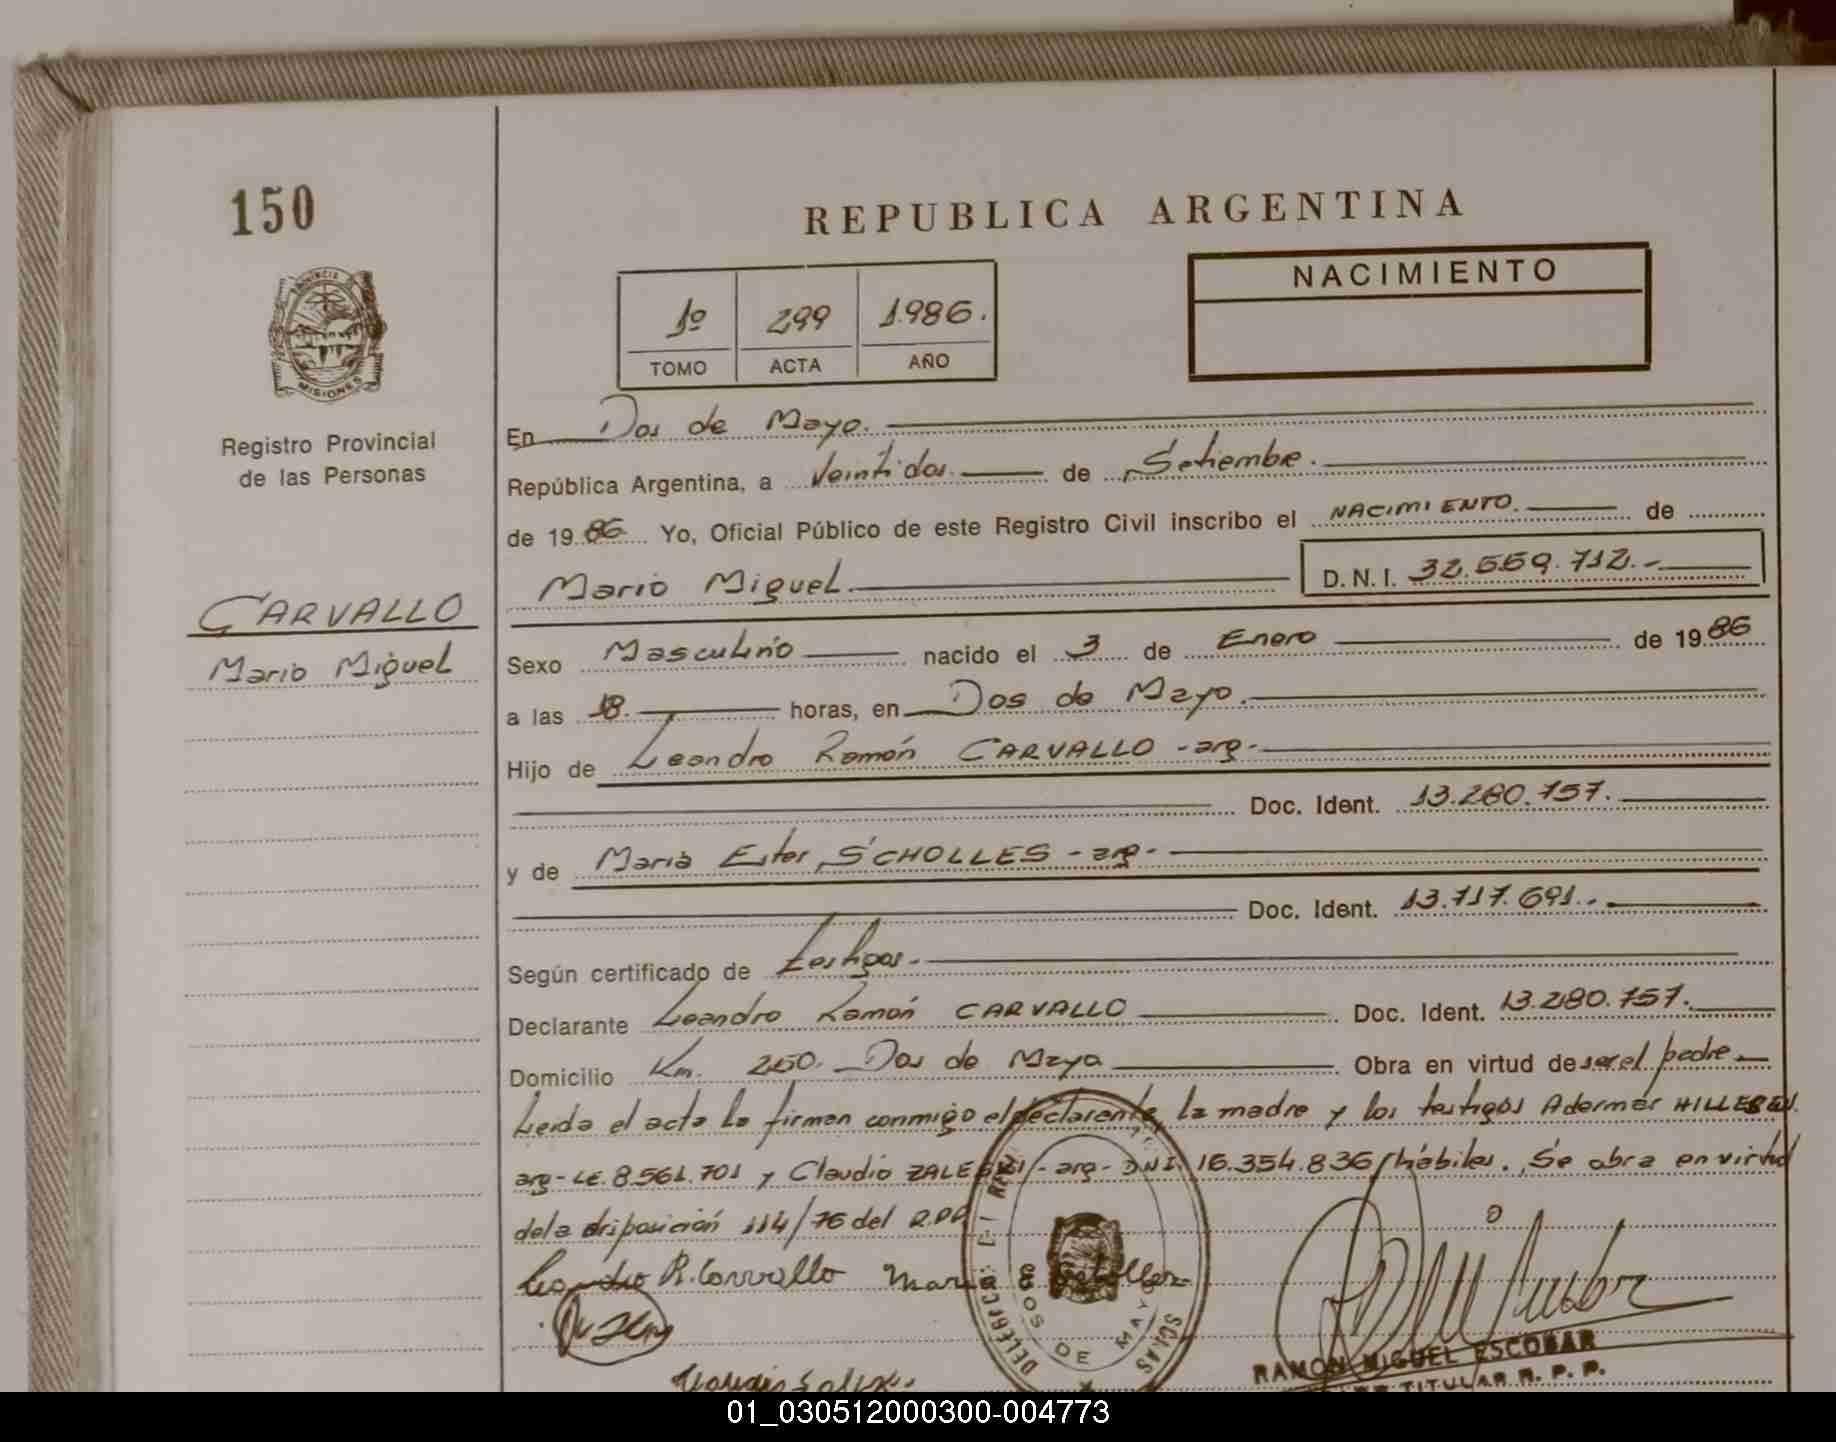 150
REPUBLICA ARGENTINA
NACIMIENTO
1º 299 1.986.
TOMO ACTA AÑO
PROVINCIA
MISIONES
Registro Provincial
de las Personas
CARVALLO
Mario Miguel
En Dos de Mayo.
República Argentina, a Veintidos. de Setiembre.
de 1986 Yo, Oficial Público de este Registro Civil inscribo el NACIMIENTO. de
Mario Miguel D.N.I. 32.559.712.-
Sexo Masculino nacido el 3 de Enero de 1986
a las 18. horas, en Dos de Mayo.
Hijo de Leandro Ramón CARVALLO -arg-
Doc. Ident. 13.280.757.
y de Maria Ester SCHOLLES -arg-
Doc. Ident. 13.717.691.-
Según certificado de testigos.
Declarante Leandro Ramón CARVALLO Doc. Ident. 13.280.757.
Domicilio Km. 250. Dos de Mayo Obra en virtud de ser el padre
Leida el acta la firman conmigo el declarente, la madre y los testigos Ademar
arg-LE.8.561.701 y Claudio -arg- DNI. 16.354.836/hábiles. Se obra en virtud
de la disposición 114/76 del R.P.P.
Leandro R. Carvallo Maria E Scholles
DOS DE MAYO
RAMON MIGUEL ESCOBAR
TITULAR R. P. P.
01_030512000300-004773